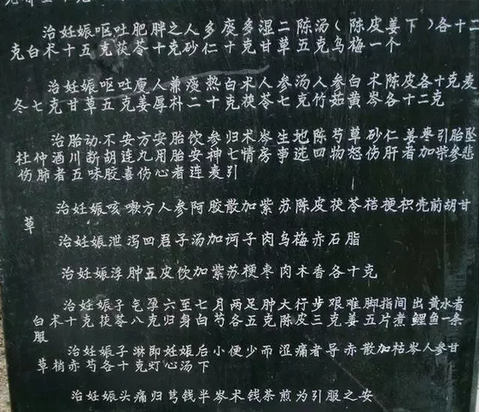 治妊娠呕吐肥胖之人多痰多湿二陈汤(陈皮姜下)各十二
克白术十五克茯苓十克砂仁十克甘草五克乌梅一个
治妊娠呕吐廋人兼痰热白术人参汤人参白术陈皮各十克麦
冬七克甘草五克姜厚朴二十克茯苓七克竹茹黄岑各十二克
治胎动不安方安胎饮参归术岑生地陈芍草砂仁姜枣引胎坠
杜仲酒川断胡连九用胎安神七情房事选四物怒伤肝者加柴参悲
伤肺者五味胶喜伤心者连麦引
治妊娠咳嗽方人参阿胶散加紫苏陈皮茯苓桔梗枳壳前胡甘
草
治妊娠泄泻四君子汤加诃子肉乌梅赤石脂
治妊娠浮肿五皮饮加紫苏梗枣肉木香各十克
治妊娠子气孕六至七月两足肿大行步艰难脚指间出黄水者
白术十克茯苓八克归身白芍各五克陈皮三克姜五片煮鲤鱼一条
服
治妊娠子淋即妊娠后小便少而涩痛者导赤散加枯岑人参甘
草梢赤芍各十克灯心汤下
治妊娠头痛归芎钱半岑术钱茶煎为引服之安